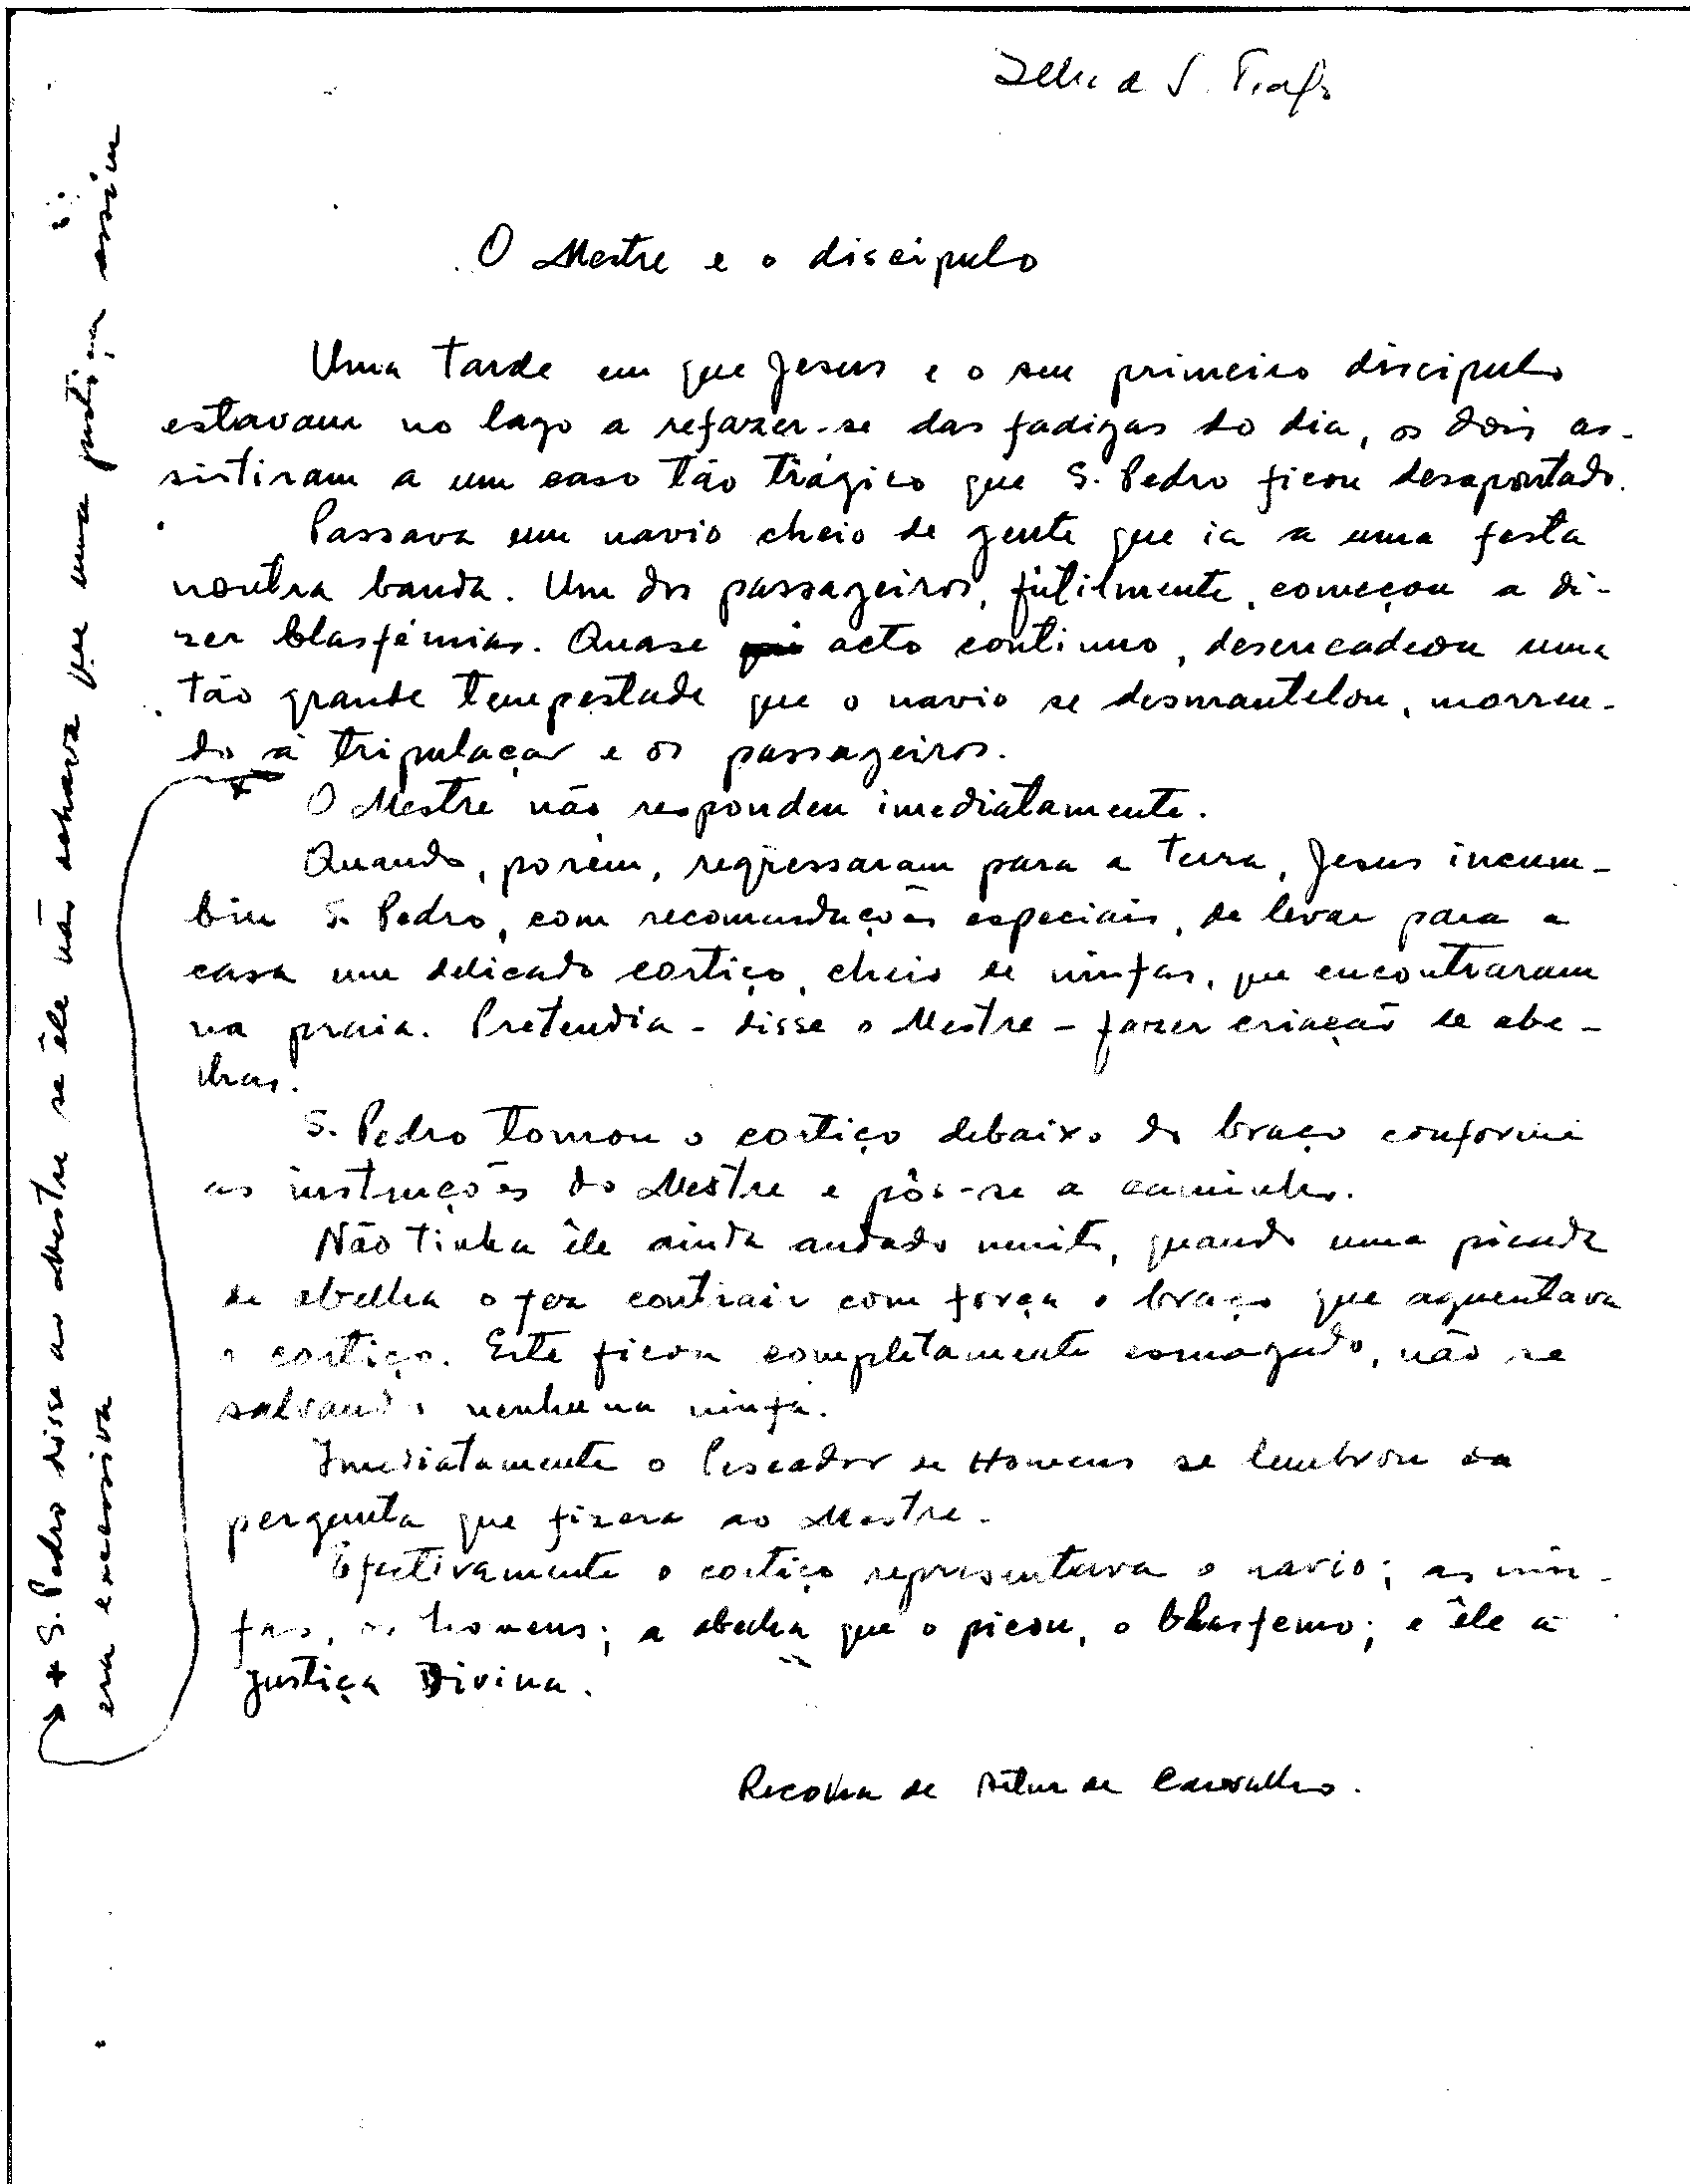 Ilha de S. Tiago
O Mestre e o discípulo
Uma tarde em que Jesus e o seu primeiro discípulo
estavam no lago a refazer-se das fadigas do dia, os dois as-
sistiram a um caso tão trágico que S. Pedro ficou desapontado.
Passava um navio cheio de gente que ia a uma festa
noutra banda. Um dos passageiros, fùtilmente, começou a di-
zer blasfémias. Quase acto contínuo, desencadeou uma
tão grande tempestade que o navio se desmantelou, morren-
do a tripulação e os passageiros.
+ O Mestre não respondeu imediatamente.
Quando, porém, regressaram para a terra, Jesus incum-
biu S. Pedro, com recomendações especiais, de levar para a
casa um delicado cortiço, cheio de ninfas, que encontraram
na praia. Pretendia - disse o Mestre - fazer criação de abe-
lhas.
S. Pedro tomou o cortiço debaixo do braço conforme
as instruções do Mestre e pôs-se a caminho.
Não tinha êle ainda andado muito, quando uma picada
de abelha o fez contrair com força o braço que aguentava
o cortiço. Este ficou completamente esmagado, não se
salvando nenhuma ninfa.
Imediatamente o Pescador de Homens se lembrou da
pergunta que fizera ao Mestre.
Efectivamente o cortiço representava o navio; as nin-
fas, os homens; a abelha que o picou, o blasfemo; e êle a
Justiça Divina.
Recolha de Artur de Carvalho.
+ S. Pedro disse ao Mestre se êle não achava que uma justiça assim
era excessiva